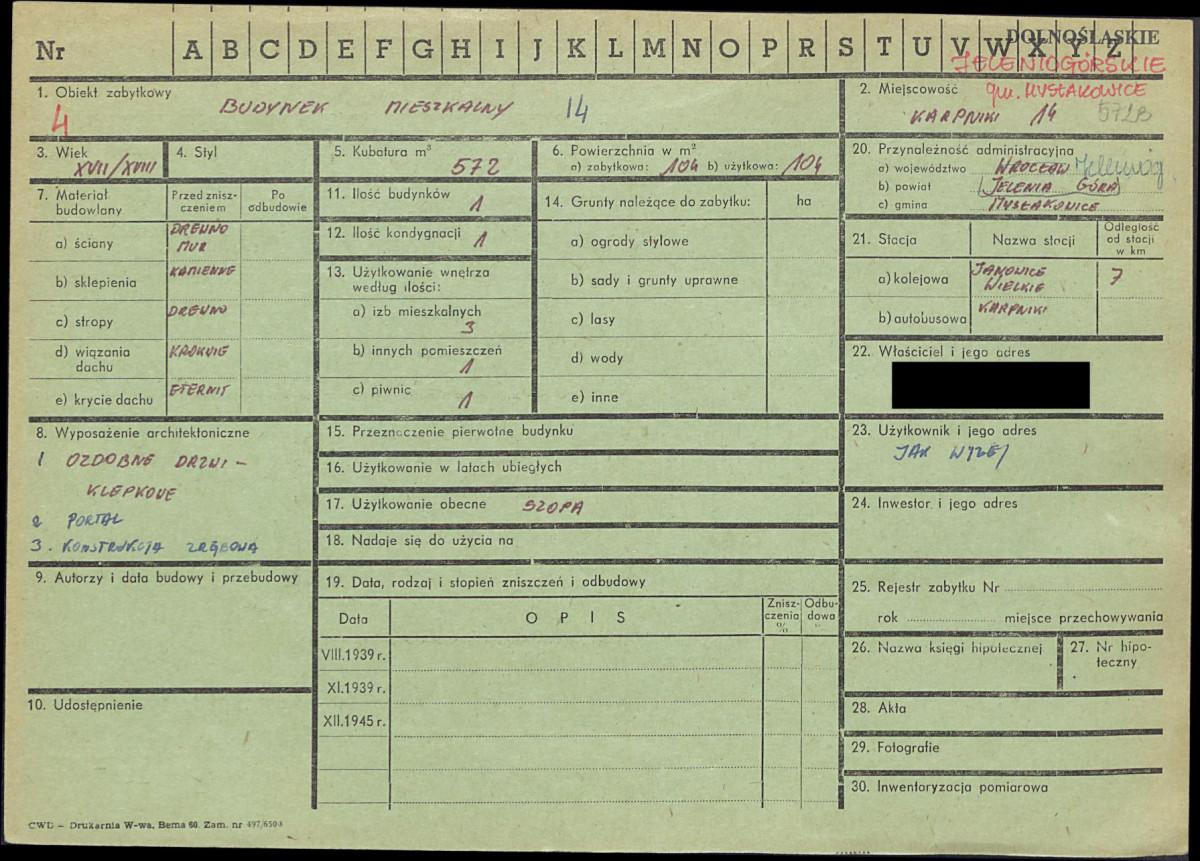 Nr A B C D E F G H I J K L M N O P R S T U V W X Y Z
DOLNOŚLĄSKIE
JELENIOGÓRSKIE
1. Obiekt zabytkowy
4 BUDYNEK MIESZKALNY 14
2. Miejscowość gm. MYSŁAKOWICE
KARPNIKI 14 572B
3. Wiek
XVII/XVIII
4. Styl
5. Kubatura m³
572
6. Powierzchnia w m²
a) zabytkowa: 104 b) użytkowa: 104
7. Materiał budowlany
Przed znisz-
czeniem
Po
odbudowie
a) ściany DREWNO
MUR
b) sklepienia KAMIENNE
c) stropy DREWNO
d) wiązania
dachu KROKWIE
e) krycie dachu ETERNIT
8. Wyposażenie architektoniczne
1 OZDOBNE DRZWI –
KLEPKOWE
2 PORTAL
3. KONSTRUKCJA ZRĘBOWA
9. Autorzy i data budowy i przebudowy
10. Udostępnienie
11. Ilość budynków 1
12. Ilość kondygnacji 1
13. Użytkowanie wnętrza
według ilości:
a) izb mieszkalnych
3
b) innych pomieszczeń
1
c) piwnic
1
14. Grunty należące do zabytku: ha
a) ogrody stylowe
b) sady i grunty uprawne
c) lasy
d) wody
e) inne
15. Przeznaczenie pierwotne budynku
16. Użytkowanie w latach ubiegłych
17. Użytkowanie obecne SZOPA
18. Nadaje się do użycia na
19. Data, rodzaj i stopień zniszczeń i odbudowy
Data
O P I S
Znisz-
czenia
%
Odbu-
dowa
"
VIII.1939 r.
XI.1939 r.
XII.1945 r.
20. Przynależność administracyjna
a) województwo WROCŁAW
b) powiat JELENIA GÓRA
c) gmina MYSŁAKOWICE
21. Stacja
Nazwa stacji
Odległość
od stacji
w km
a) kolejowa JANOWICE
WIELKIE 7
b) autobusowa KARPNIKI
22. Właściciel i jego adres
23. Użytkownik i jego adres
JAK WYŻEJ
24. Inwestor i jego adres
25. Rejestr zabytku Nr
rok miejsce przechowywania
26. Nazwa księgi hipotecznej
27. Nr hipo-
teczny
28. Akta
29. Fotografie
30. Inwentaryzacja pomiarowa
CWD – Drukarnia W-wa, Bema 60. Zam. nr 497/6503